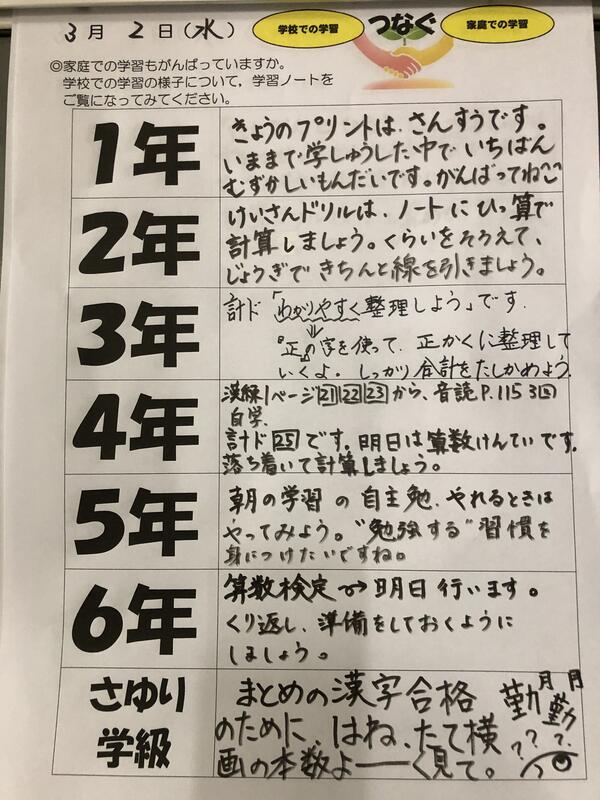 3月 2日(水)
学校での学習
つなぐ
家庭での学習
◎家庭での学習もがんばっていますか。
学校での学習の様子について,学習ノートを
ご覧になってみてください。
1年
きょうのプリントは、さんすうです。
いままで学しゅうした中でいちばん
むずかしいもんだいです。がんばってね
2年
けいさんドリルは、ノートにひっ算で
計算しましょう。くらいをそろえて、
じょうぎできちんと線を引きましょう。
3年
計ド「わかりやすく整理しよう」です.
『正』の字を使って、正かくに整理して
いくよ。しっかり合計をたしかめよう.
4年
漢練1ページ212223から、音読P.115 3回
自学.
計ド25です。明日は算数けんていです.
落ち着いて計算しましょう。
5年
朝の学習の自主勉、やれるときは
やってみよう。"勉強する"習慣を
身につけたいですね。
6年
算数検定→明日行います。
くり返し、準備をしておくように
しましょう。
さゆり
学級
まとめの漢字合格
のために、はね、たて横
画の本数よーーく見て。
勤
???